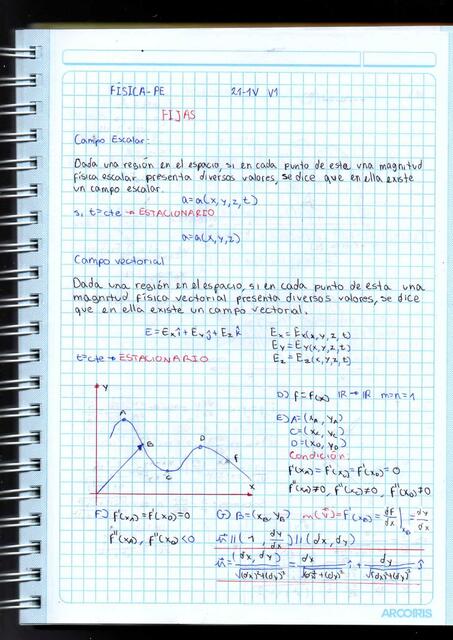 FÍSICA-PE 21-IV V1
FIJAS
Campo Escalar:
Dada una región en el espacio, si en cada punto de esta una magnitud
física escalar presenta diversos valores, se dice que en ella existe
un campo escalar.
a=a(x,y,z,t)
si t=cte → ESTACIONARIO
a=a(x,y,z)
Campo vectorial
Dada una región en el espacio, si en cada punto de esta una
magnitud física vectorial presenta diversos valores, se dice
que en ella existe un campo vectorial.
E=Exî+Eyĵ+Ezk̂ Ex=Ex(x,y,z,t)
Ey=Ey(x,y,z,t)
t=cte→ESTACIONARIO Ez=Ez(x,y,z,t)
Y
A
B
C
D
F
X
D) f=f(x) IR → IR m=n=1
E) A=(xA, yA)
C=(xC, yC)
D=(xD, yD)
Condición:
f'(xA)=f'(xC)=f'(xD)=0
f''(xA)≠0, f''(xC)≠0, f''(xD)≠0
F) f'(xA)=f'(xD)=0 G) B=(xB, yB) m(v⃗)=f'(xB)=df/dx|xB=dy/dx
f''(xA), f''(xD)<0 u⃗ || (1, dy/dx) || (dx, dy)
u⃗=(dx, dy)/√(dx)²+(dy)²=dx/√(dx)²+(dy)² î+dy/√(dx)²+(dy)² ĵ
ARCOIRIS